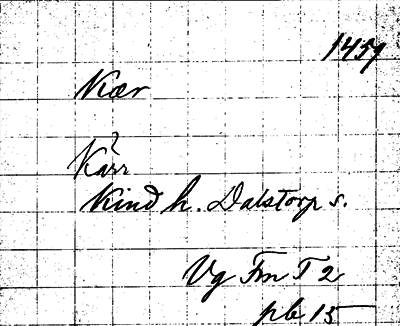 1459
Kær
?
Kärr
Kind h. Dalstorp s.
Vg Fm T 2
pb 15